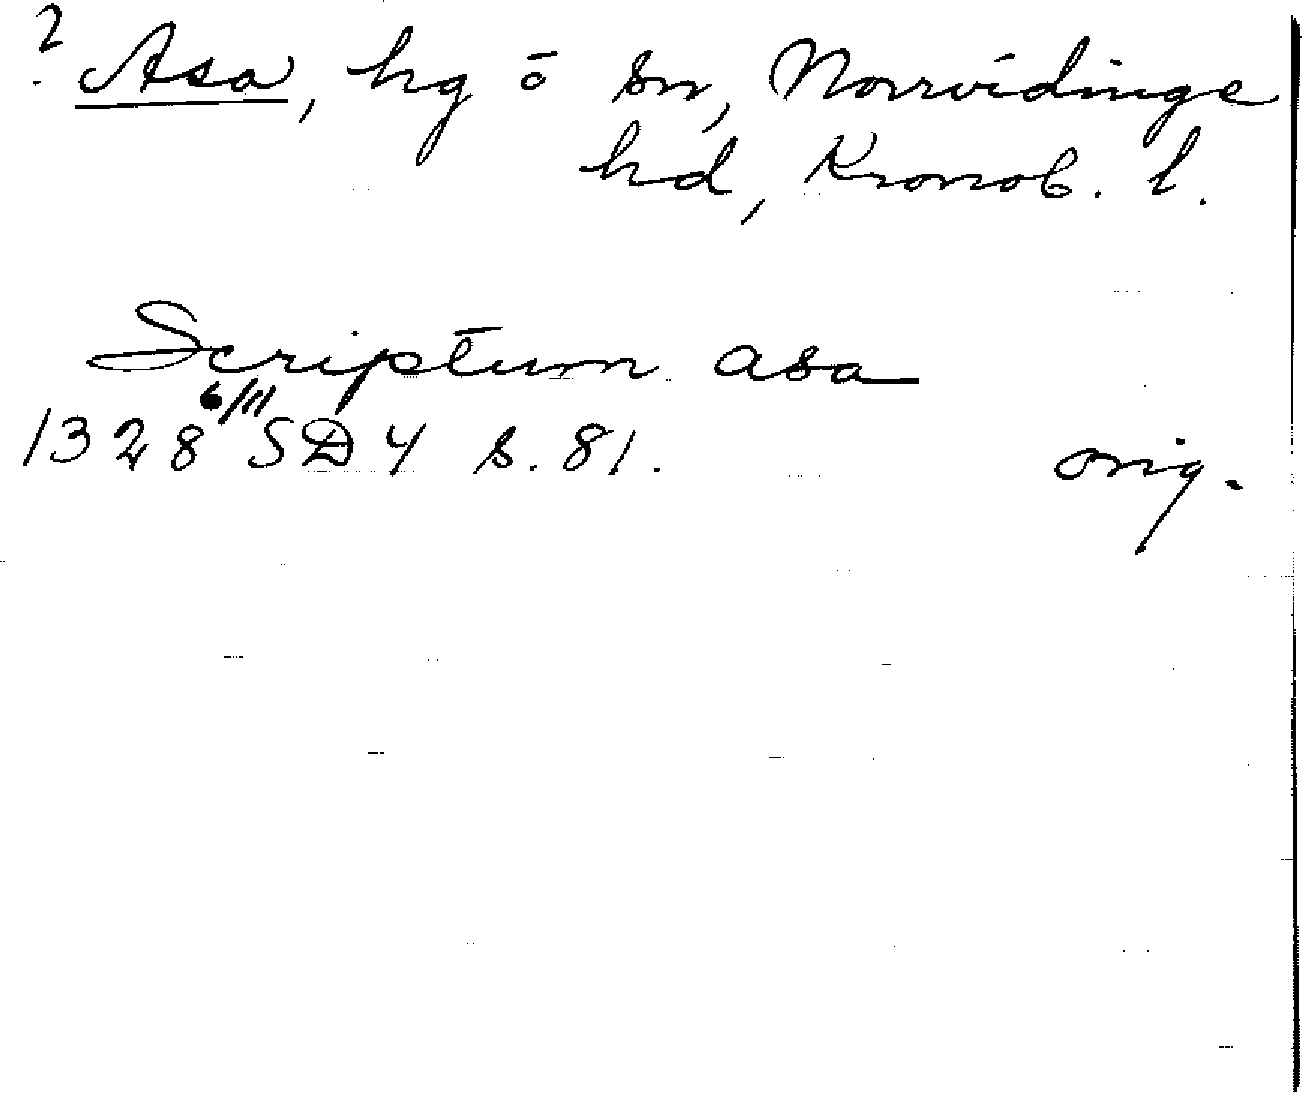 ? Asa, hg ō sn, Norrvidinge
hd, Kronob. l.
Scriptum asa
1328 6/11 SD 4 s. 81. orig.